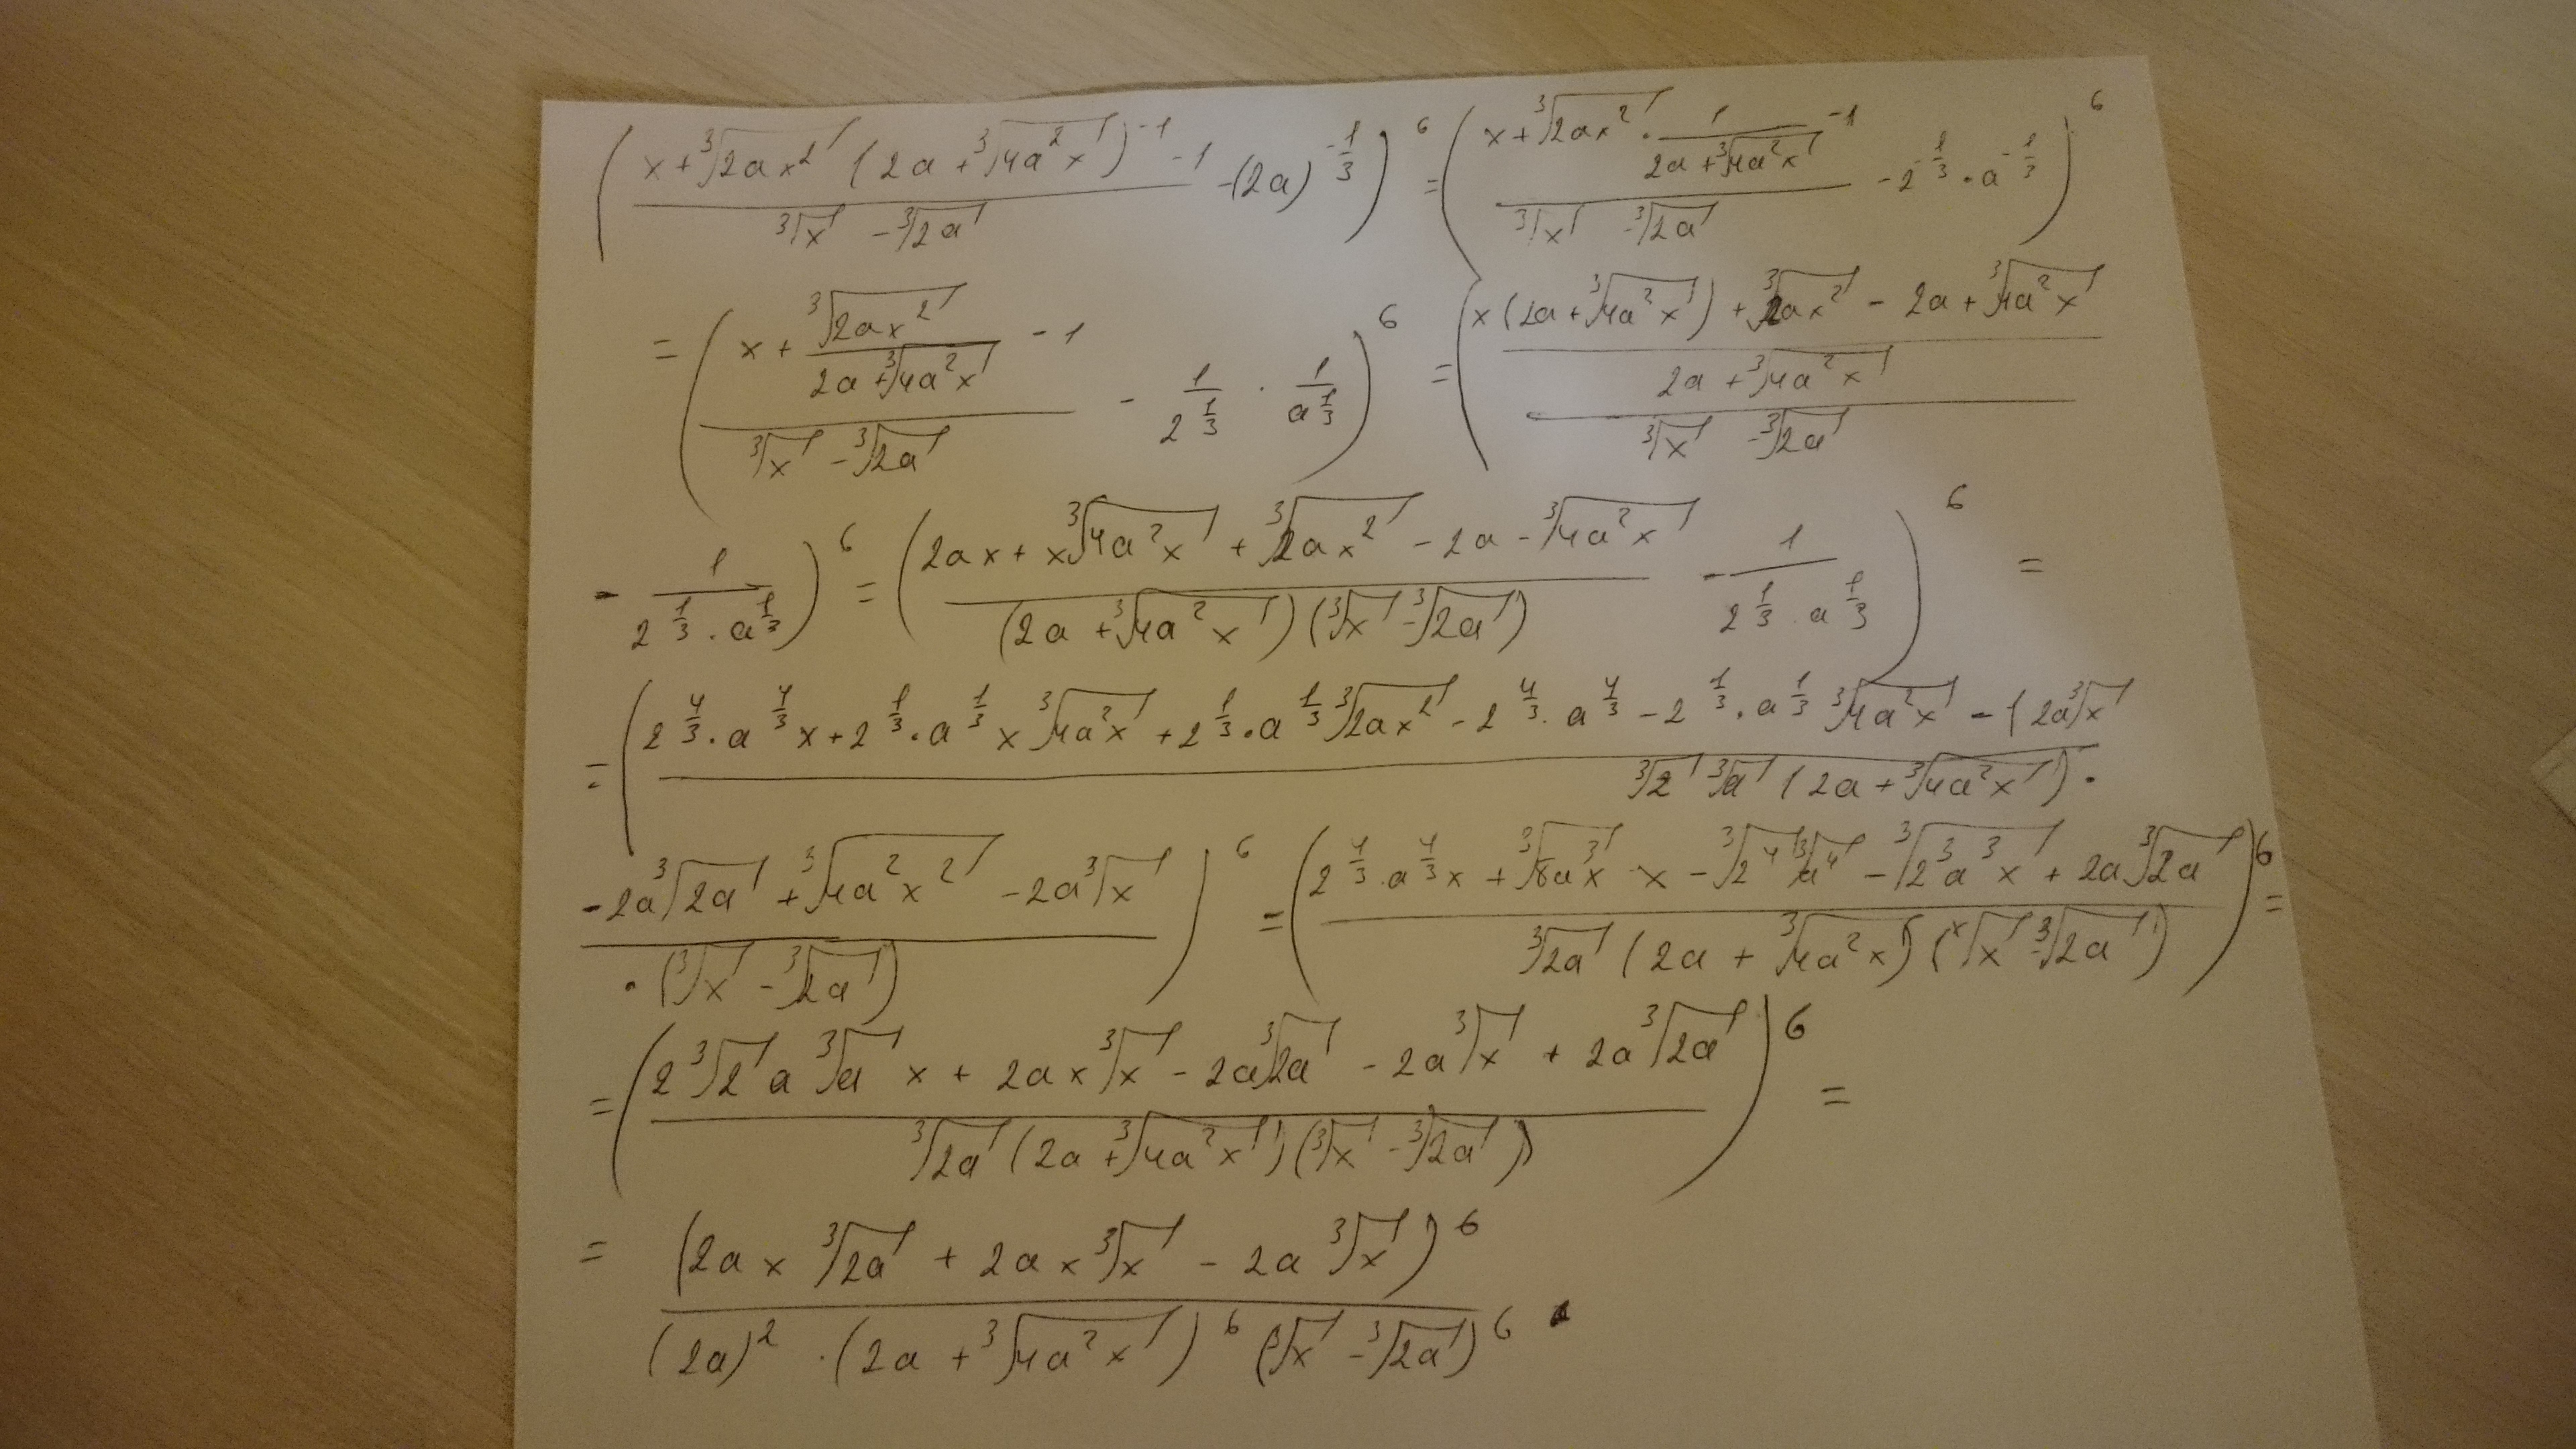 ( (x + ∛(2ax²) (2a + ∛(4a²x))⁻¹ - 1) / (∛x - ∛(2a)) - (2a)^(-1/3) )⁶ = ( (x + ∛(2ax²) · 1/(2a + ∛(4a²x)) - 1) / (∛x - ∛(2a)) - 2^(-1/3) · a^(-1/3) )⁶
= ( (x + ∛(2ax²)/(2a + ∛(4a²x)) - 1) / (∛x - ∛(2a)) - 1/2^(1/3) · 1/a^(1/3) )⁶ = ( ((x(2a + ∛(4a²x)) + ∛(2ax²) - 2a + ∛(4a²x)) / (2a + ∛(4a²x))) / (∛x - ∛(2a))
- 1/(2^(1/3) · a^(1/3)) )⁶ = ( (2ax + x∛(4a²x) + ∛(2ax²) - 2a - ∛(4a²x)) / ((2a + ∛(4a²x))(∛x - ∛(2a))) - 1/(2^(1/3) · a^(1/3)) )⁶ =
= ( (2^(4/3) · a^(4/3) x + 2^(1/3) · a^(1/3) x ∛(4a²x) + 2^(1/3) · a^(1/3) ∛(2ax²) - 2^(4/3) · a^(4/3) - 2^(1/3) · a^(1/3) ∛(4a²x) - (2a∛x / ∛2 ∛a (2a + ∛(4a²x)) ·
- 2a∛(2a) + ∛(4a²x²) - 2a∛x / · (∛x - ∛(2a)) )⁶ = ( (2^(4/3) · a^(4/3) x + ∛(8a³x) · x - ∛(2⁴) ∛(a⁴) - ∛(2³a³x) + 2a∛(2a)) / (∛(2a) (2a + ∛(4a²x)) (ˣ√x - ∛(2a))) )⁶ =
= ( (2∛2 a ∛a x + 2ax∛x - 2a∛(2a) - 2a∛x + 2a∛(2a)) / (∛(2a) (2a + ∛(4a²x)) (∛x - ∛(2a))) )⁶ =
= (2ax ∛(2a) + 2ax∛x - 2a ∛x)⁶ / ((2a)² · (2a + ∛(4a²x))⁶ (∛x - ∛(2a))⁶)